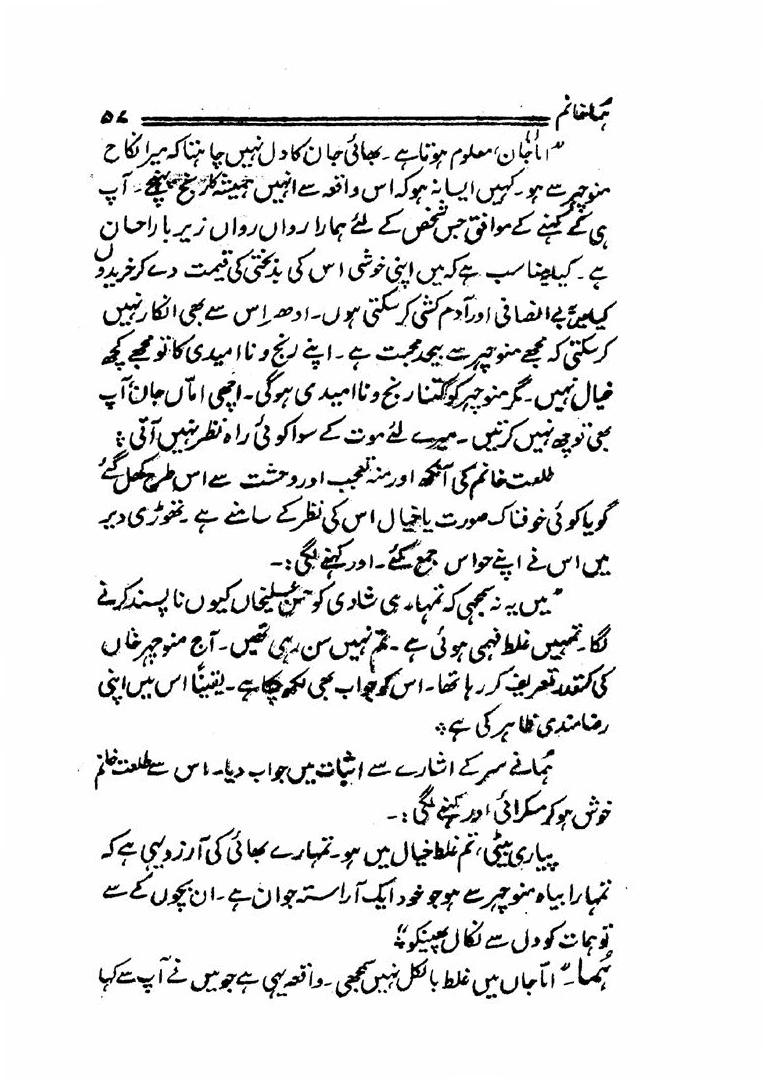 ہما خانم ۵۷
"اماں جان! معلوم ہوتا ہے۔ بھائی جان کا دل نہیں چاہتا کہ میرا نکاح
منوچہر سے ہو۔ کہیں ایسا نہ ہو کہ اس واقعہ سے انہیں ہمیشہ کا رنج پہنچے۔ آپ
ہی کے کہنے کے موافق جس شخص کے لئے ہمارا رواں رواں زیر بار احسان
ہے۔ کیا مناسب ہے کہ میں اپنی خوشی اس کی بدبختی کی قیمت دے کر خریدوں
کیا میں بے انصافی اور آدم کشی کر سکتی ہوں۔ ادھر اس سے بھی انکار نہیں
کر سکتی کہ مجھے منوچہر سے بیحد محبت ہے۔ اپنے رنج و ناامیدی کا تو مجھے کچھ
خیال نہیں۔ مگر منوچہر کو کتنا رنج و ناامیدی ہوگی۔ اچھی اماں جان آپ
بھی توجہ نہیں کرتیں۔ میرے لئے موت کے سوا کوئی راہ نظر نہیں آتی؛
طلعت خانم کی آنکھ اور منہ تعجب اور وحشت سے اس طرح کھل گئے
گویا کوئی خوفناک صورت یا خیال اس کی نظر کے سامنے ہے۔ تھوڑی دیر
میں اس نے اپنے حواس جمع کئے۔ اور کہنے لگی:۔
"میں یہ نہ سمجھی کہ تمہاری شادی کو حسن علیخاں کیوں ناپسند کرنے
لگا۔ تمہیں غلط فہمی ہوئی ہے۔ تم نہیں سن رہی تھیں۔ آج منوچہر خاں
کی کسقدر تعریف کر رہا تھا۔ اس کو جواب بھی لکھ چکا ہے۔ یقیناً اس میں اپنی
رضامندی ظاہر کی ہے؛
ہمانے سر کے اشارے سے اثبات میں جواب دیا۔ اس سے طلعت خانم
خوش ہو کر مسکرائی اور کہنے لگی:۔
پیاری بیٹی، تم غلط خیال میں ہو۔ تمہارے بھائی کی آرزو یہی ہے کہ
تمہارا بیاہ منوچہر سے ہو جو خود ایک آراستہ جوان ہے۔ ان بچوں کے سے
توہمات کو دل سے نکال پھینکو؛"
ہُما۔ "اماں جاں میں غلط بالکل نہیں سمجھی۔ واقعہ یہی ہے جو میں نے آپ سے کہا